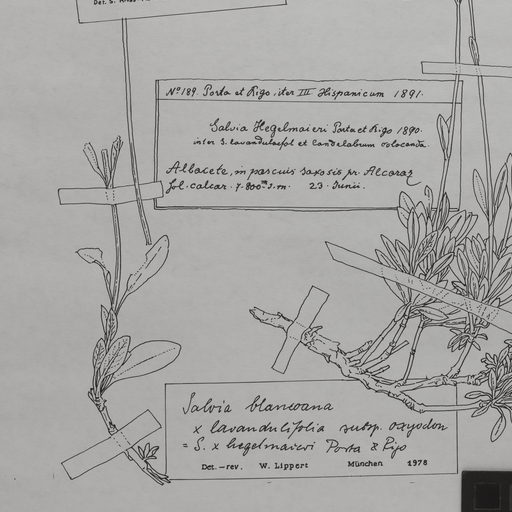 Det. S.
No 189. Porta et Rigo, iter III Hispanicum 1891.
Salvia Hegelmaieri Porta et Rigo 1890.
inter S. lavandulaefol et Candelabrum colocanda.
Albacete, in pascuis saxosis pr. Alcaraz
sol. calcar. 7-800 s.m. 23 Junii.
Salvia blancoana
x lavandulifolia subsp. oxyodon
= S. x hegelmaieri Porta & Rigo
Det.-rev. W. Lippert München 1978